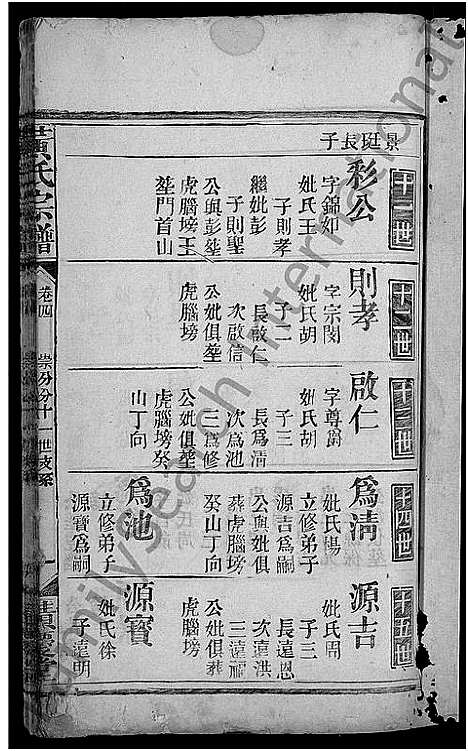 景珽長子
十一世
彩公
字錦如
妣氏王
子則孝
繼妣彭
子則聖
公與彭塟
虎腦塝王
塟門首山
十二世
則孝
字宗閔
妣氏胡
子二
長啟仁
次啟信
公妣俱塟
虎腦塝
十三世
啟仁
字尊爵
妣氏胡
子三
長爲淸
次爲池
三爲修
公妣俱塟
虎腦塝癸
山丁向
十四世
爲淸
妣氏楊
立修弟子
源吉爲嗣
公與妣俱
葬虎腦塝
癸山丁向
爲池
立修弟子
源寳爲嗣
十五世
源吉
妣氏周
子三
長遠恩
次遠洪
三遠福
公妣俱葬
虎腦塝
源寳
妣氏徐
子遠明
黃氏宗譜
卷四
崇分分十一世支系
familysearch international